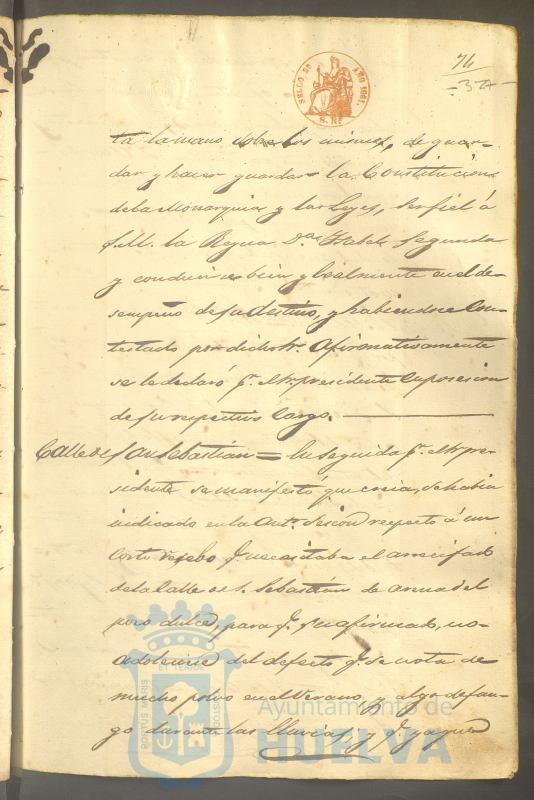 74
327
SELLO 9º AÑO 1861.
S. Rs
ta la mano sobre los mismos, de guar-
dar y hacer guardar la Constitucion
de la Monarquia y las Leyes, ser fiel á
S. M. la Reyna Dª Isabel Segunda
y conducirse bien y lealmente en el de-
sempeño de su destino, y habiendose con-
testado por dicho Sr. afirmativamente
se le declaró pr. el Sr. presidente en posesion
de su respectivo cargo.
Calle de San Sebastian = En seguida pr. el Sr. pre-
sidente se manifestó que creia, se habia
indicado en la antr. Sesion respecto á un
corto recebo qe. necesitaba el arrecifado
de la Calle de S. Sebastian de arena del
pozo dulce, para qe. su afirmado, no
adoleciese del defecto qe. se nota de
mucho polvo en el Verano, y algo de fan-
go durante las lluvias, y qe. ya que
PORTUS MARIS ET TERRAE CUSTODIA
Ayuntamiento de
HUELVA